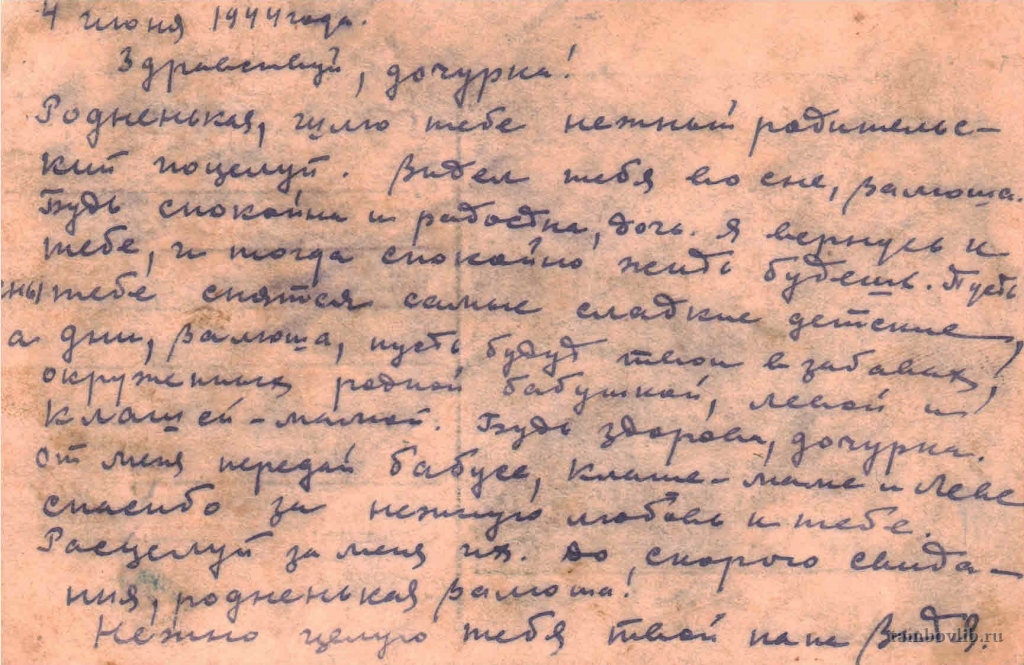 4 июня 1944 года.
Здравствуй, дочурка!
Родненькая, шлю тебе нежный родительс-
кий поцелуй. Видел тебя во сне, Валюша.
Будь спокойна и радостна, дочь. Я вернусь к
тебе, и тогда спокойно жить будешь. Пусть
сны тебе снятся самые сладкие детские,
а дни, Валюша, пусть будут твои в забавах,
окруженных родной бабушкой, Левой и
Клашей-мамой. Будь здорова, дочурка.
От меня передай бабусе, Клаше-маме и Леве
спасибо за нежную любовь к тебе.
Расцелуй за меня их. До скорого свида-
ния, родненькая Валюша!
Нежно целую тебя твой папа
rainbovlib.ru